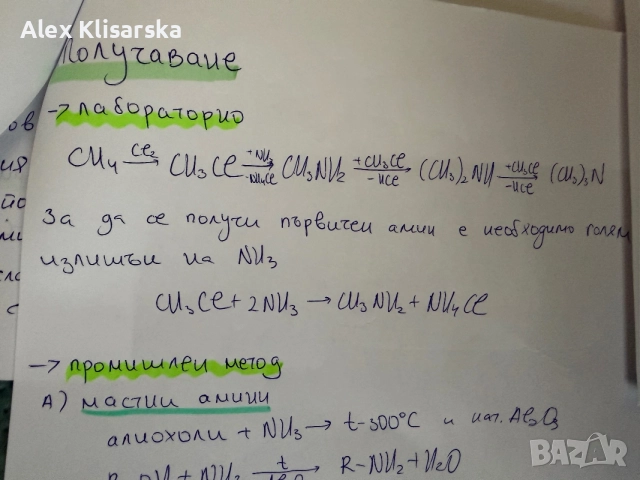 Alex Klisarska
Получаване
→ лабораторно
CH4 —Cl2→ CH3Cl —+NH3 / -NH4Cl→ CH3NH2 —+CH3Cl / -HCl→ (CH3)2NH —+CH3Cl / -HCl→ (CH3)3N
За да се получи първичен амин е необходимо голям
излишък на NH3
CH3Cl + 2NH3 → CH3NH2 + NH4Cl
→ промишлен метод
А) мастни амини
алкохоли + NH3 → t-300°C и кат. Al2O3
R-OH + NH3 —t / Al2O3→ R-NH2 + H2O
BAZAR